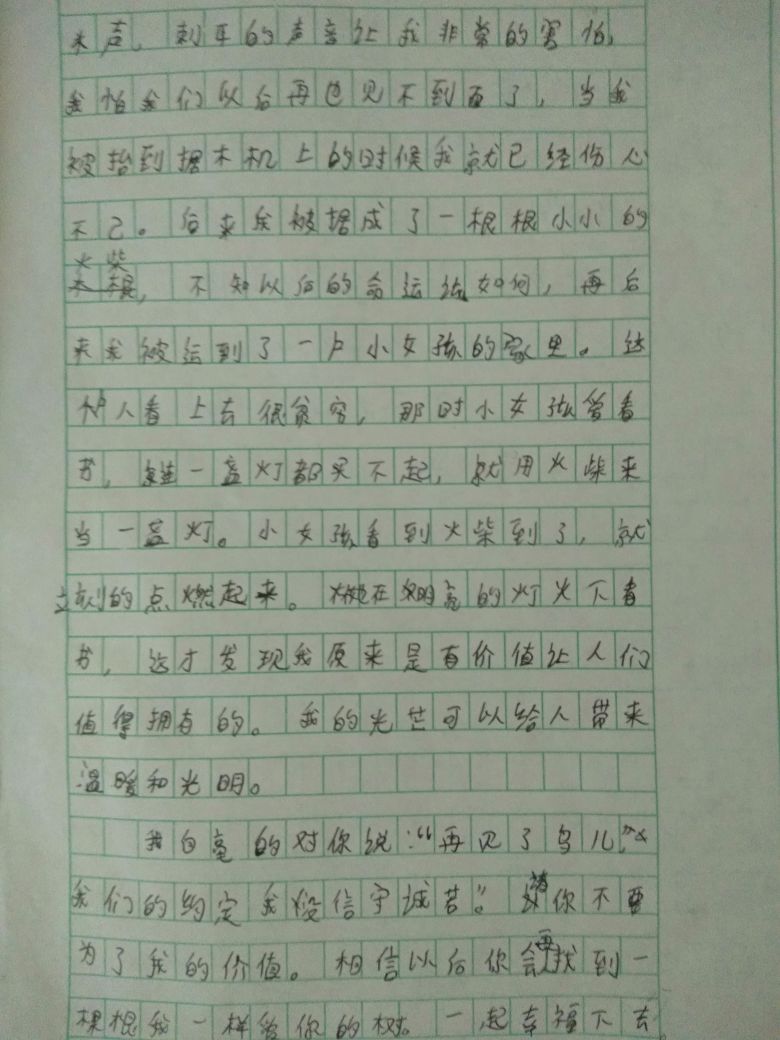 来声，刺耳的声音让我非常的害怕，
我怕我们以后再也见不到面了，当我
被抬到据木机上的时候我就已经伤心
不已。后来我被据成了一根根小小的
火柴，不知以后的命运该如何，再后
来我被运到了一户小女孩的家里。这
户人看上去很贫穷，那时小女孩爱看
书，连一盏灯都买不起，就用火柴来
当一盏灯。小女孩看到火柴到了，就
立刻的点燃起来。她在明亮的灯火下看
书，这才发现我原来是有价值让人们
值得拥有的。我的光芒可以给人带来
温暖和光明。
我白亮的对你说：“再见了鸟儿，
我们的约定我没信守诚若”。请你不要
为了我的价值。相信以后你会再找到一
棵根我一样爱你的树。一起幸福下去。